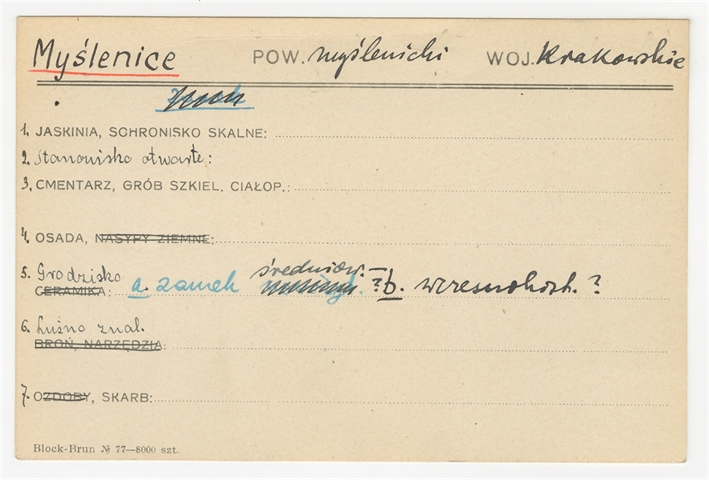 Myślenice POW. myślenicki WOJ. Krakowskie
1. JASKINIA, SCHRONISKO SKALNE:
2. Stanowisko otwarte:
3. CMENTARZ, GRÓB SZKIEL. CIAŁOP.:
4. OSADA, NASYPY ZIEMNE:
średniow.
5. Grodzisko
CERAMIKA: a. zamek ? b. wczesnohist. ?
6. Luźno znal.
BROŃ, NARZĘDZIA:
7. OZDOBY, SKARB:
Block-Brun № 77—8000 szt.